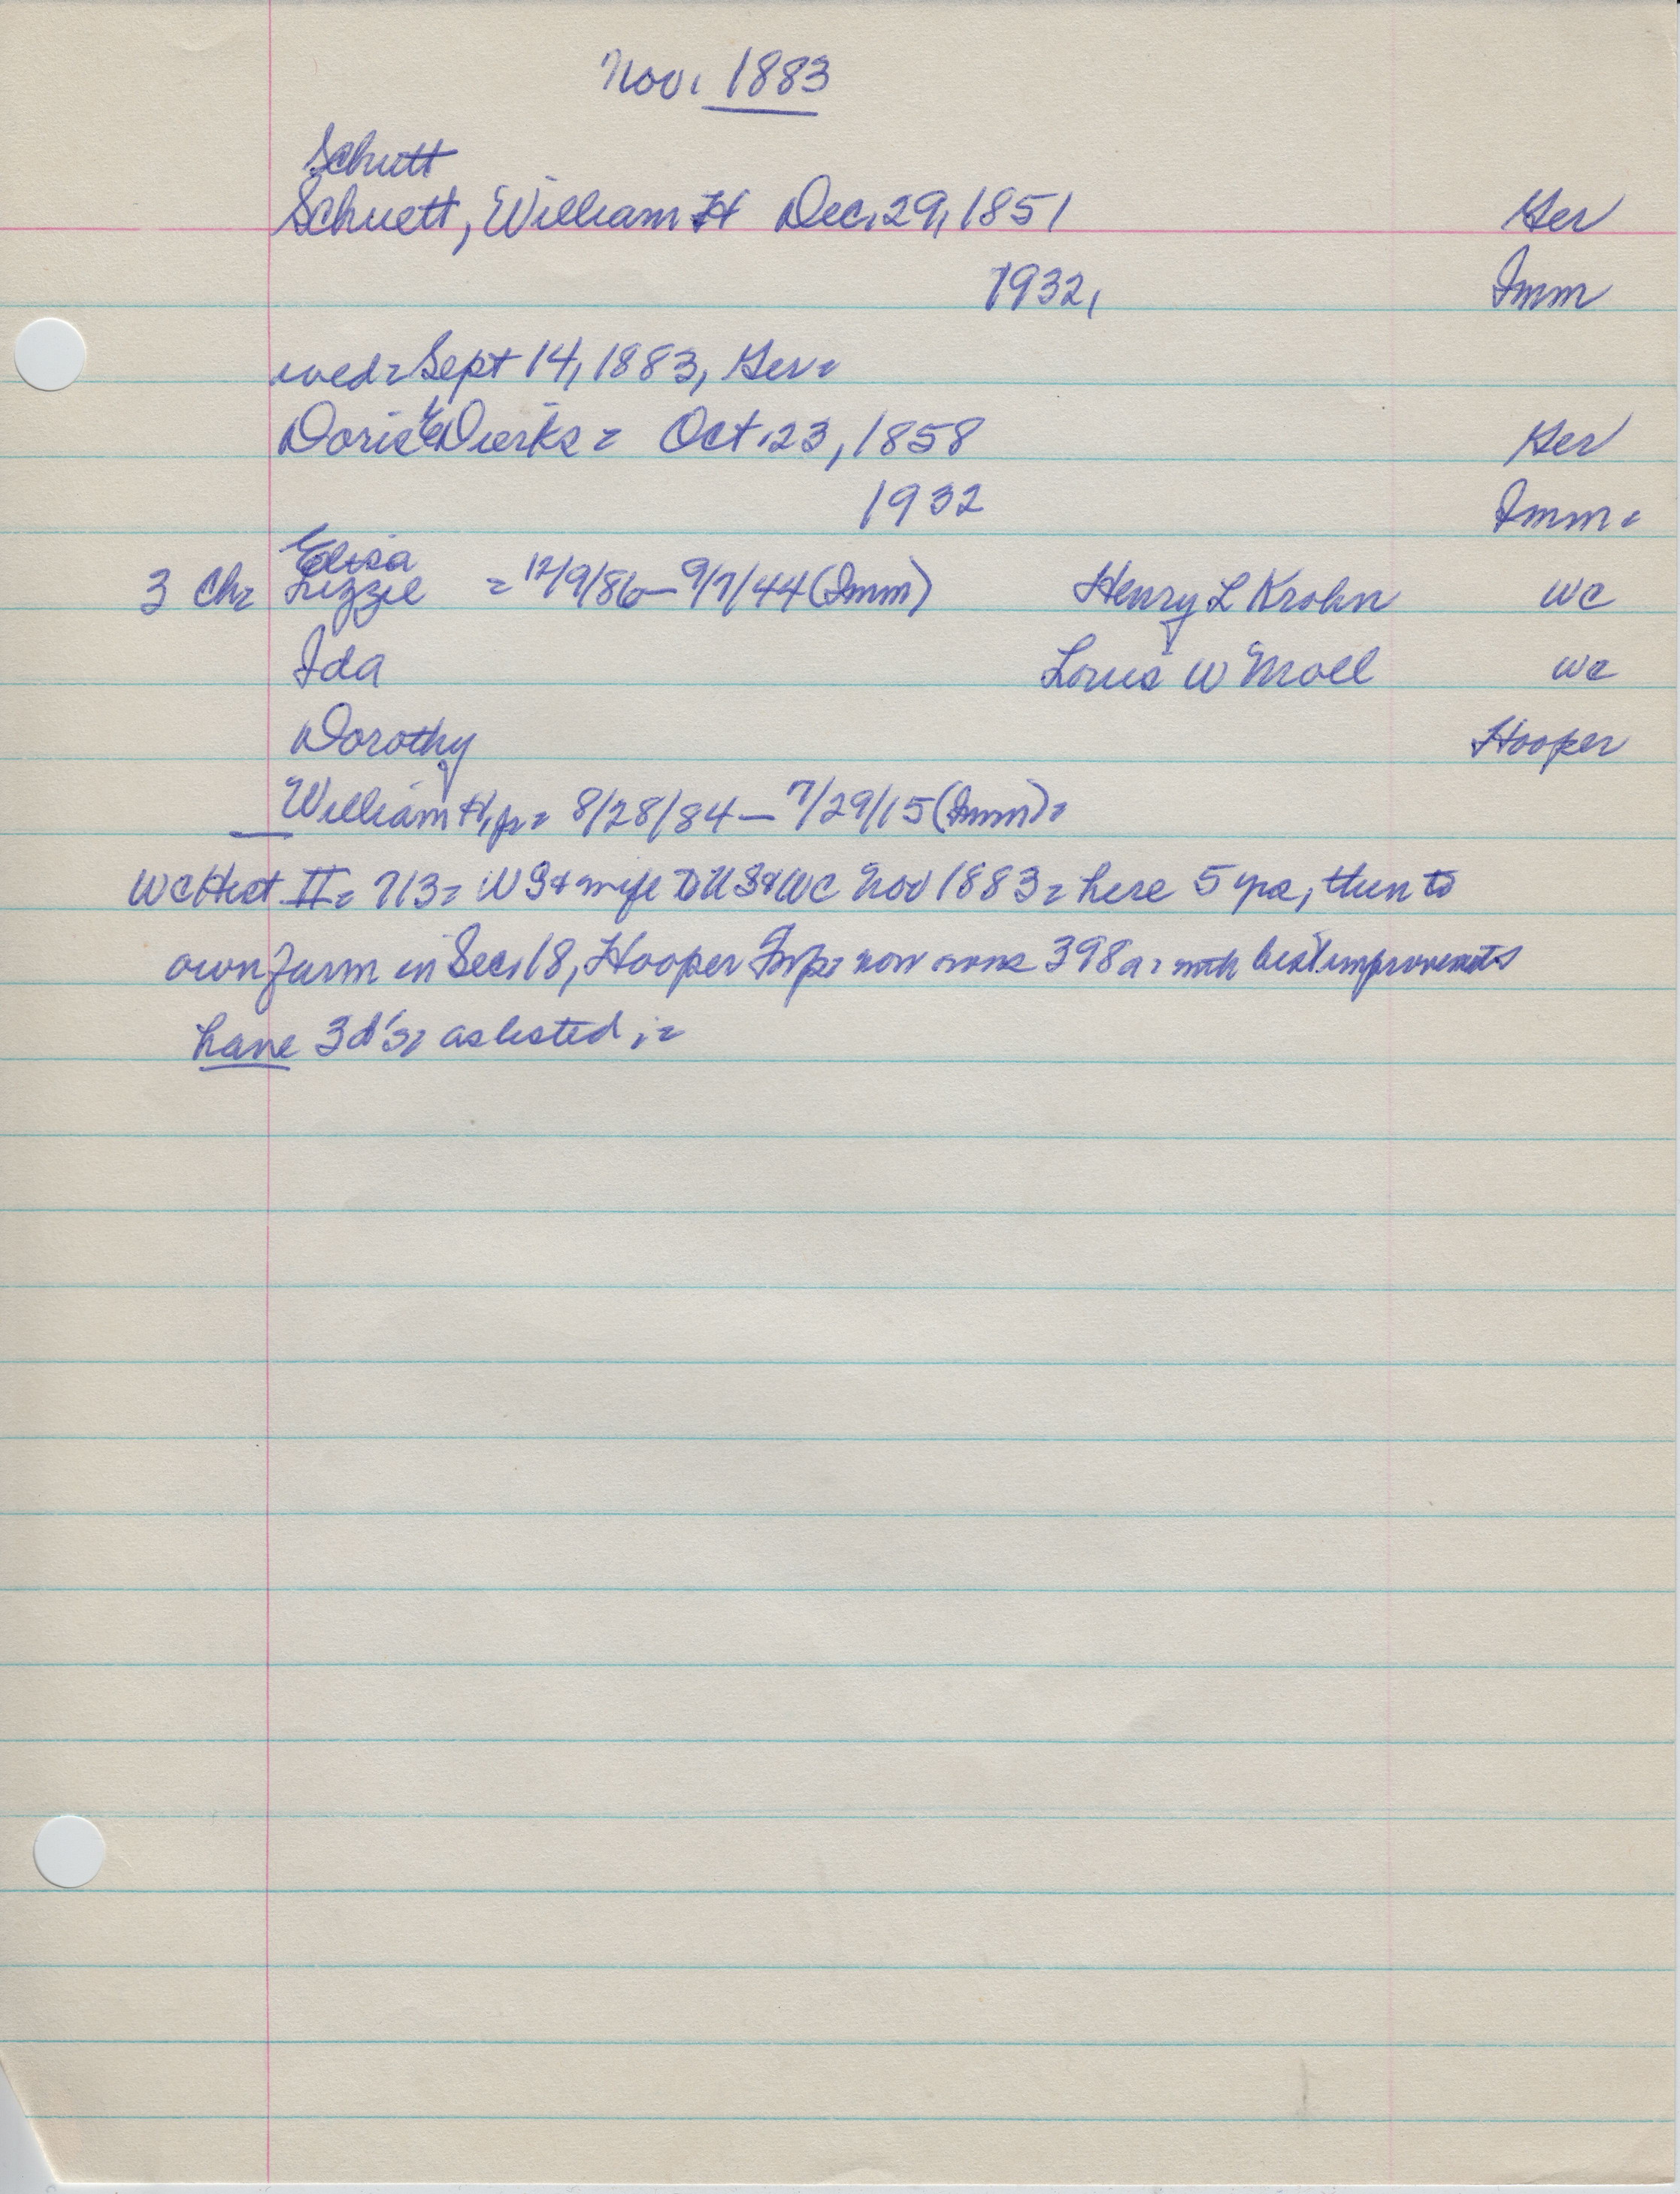 Nov. 1883
Schutt
Schuett, William H Dec. 29, 1851 Ger
1932, Imm
wed= Sept 14, 1883, Ger=
Doris E Dierks= Oct. 23, 1858 Ger
1932 Imm=
Eliza
3 Ch= Lizzie = 12/9/86-9/7/44 (Imm) Henry L Krohn WC
Ida Louis W Moll WC
Dorothy Hooper
William H, jr= 8/28/84 - 7/29/15 (Imm)=
WC Hist II= 713= W S & wife to U S & WC Nov 1883= here 5 yrs, then to
own farm in Sec. 18, Hooper Twp= now owns 398 a= with best improvements
have 3 d's, as listed,=